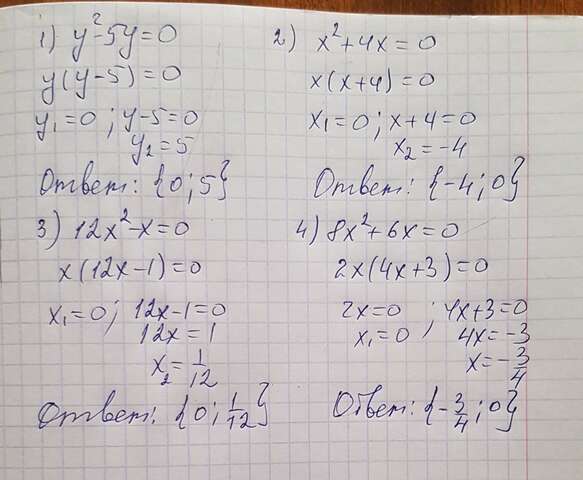 1) y²-5y=0
y(y-5)=0
y₁=0 ; y-5=0
y₂=5
Ответ: {0;5}
2) x²+4x=0
x(x+4)=0
x₁=0; x+4=0
x₂=-4
Ответ: {-4;0}
3) 12x²-x=0
x(12x-1)=0
x₁=0; 12x-1=0
12x=1
x₂=1/12
Ответ: {0; 1/12}
4) 8x²+6x=0
2x(4x+3)=0
2x=0 ; 4x+3=0
x₁=0 4x=-3
x=-3/4
Ответ: {-3/4;0}